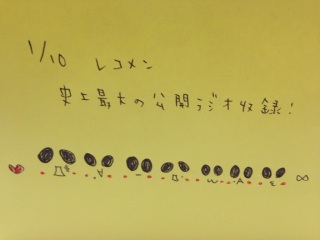 1/10 レコメン
史上最大の公開ラジオ収録!